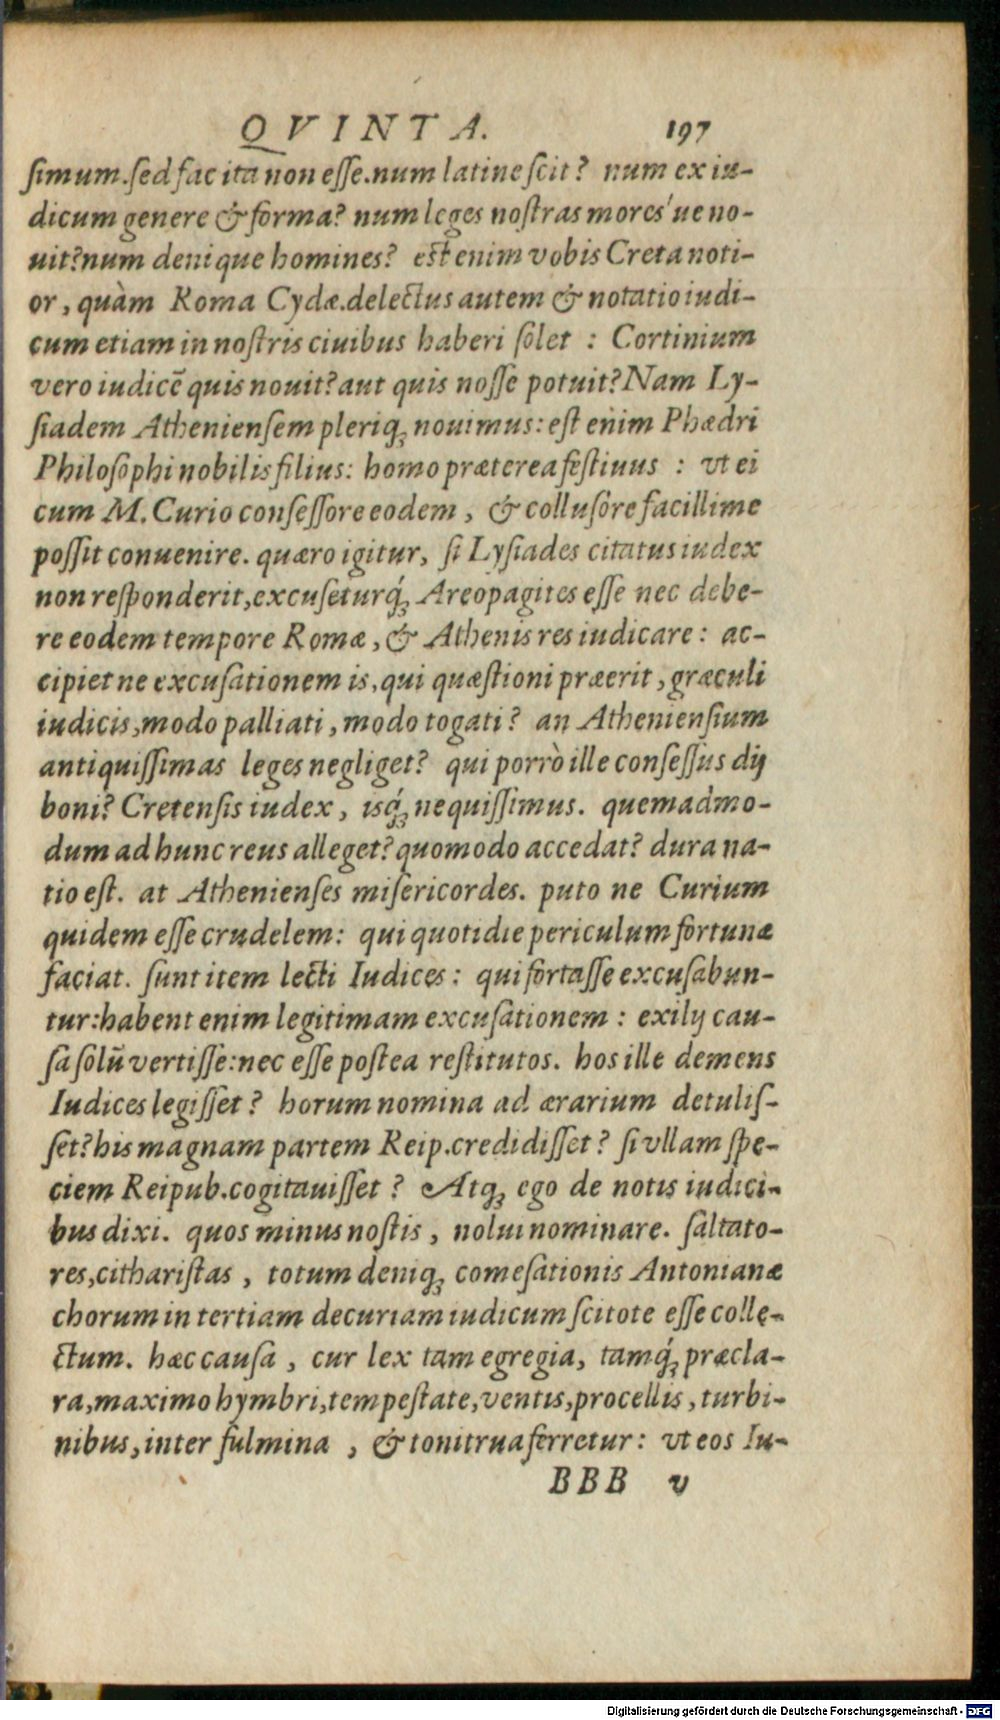 QVINTA. 197
ſimum. ſed fac ita non eſſe. num latine ſcit? num ex iu-
dicum genere & forma? num leges noſtras mores'ue no-
uit? num denique homines? eſt enim vobis Creta noti-
or, quàm Roma Cydæ. delectus autem & notatio iudi-
cum etiam in noſtris ciuibus haberi ſolet : Cortinium
vero iudicē quis nouit? aut quis noſſe potuit? Nam Ly-
ſiadem Athenienſem pleriqꝫ nouimus: eſt enim Phædri
Philoſophi nobilis filius: homo præterea feſtiuus : vt ei
cum M. Curio conſeſſore eodem, & colluſore facillime
poſſit conuenire. quæro igitur, ſi Lyſiades citatus iudex
non reſponderit, excuſeturq́ꝫ Areopagites eſſe nec debe-
re eodem tempore Romæ, & Athenis res iudicare: ac-
cipiet ne excuſationem is, qui quæſtioni præerit, græculi
iudicis, modo palliati, modo togati? an Athenienſium
antiquiſſimas leges negliget? qui porrò ille conſeſſus dij
boni? Cretenſis iudex, isq́ꝫ nequiſſimus. quemadmo-
dum ad hunc reus alleget? quomodo accedat? dura na-
tio eſt. at Athenienſes miſericordes. puto ne Curium
quidem eſſe crudelem: qui quotidie periculum fortunæ
faciat. ſunt item lecti Iudices: qui fortaſſe excuſabun-
tur: habent enim legitimam excuſationem : exilij cau-
ſa ſolū vertiſſe: nec eſſe poſtea reſtitutos. hos ille demens
Iudices legiſſet? horum nomina ad ærarium detuliſ-
ſet? his magnam partem Reip. credidiſſet? ſi vllam ſpe-
ciem Reipub. cogitauiſſet? Atqꝫ ego de notis iudici-
bus dixi. quos minus noſtis, nolui nominare. ſaltato-
res, cithariſtas, totum deniqꝫ comeſationis Antonianæ
chorum in tertiam decuriam iudicum ſcitote eſſe colle-
ctum. hæc cauſa, cur lex tam egregia, tamq́ꝫ præcla-
ra, maximo hymbri, tempeſtate, ventis, procellis, turbi-
nibus, inter fulmina, & tonitrua ferretur: vt eos Iu-
BBB v
Digitalisierung gefördert durch die Deutsche Forschungsgemeinschaft - DFG